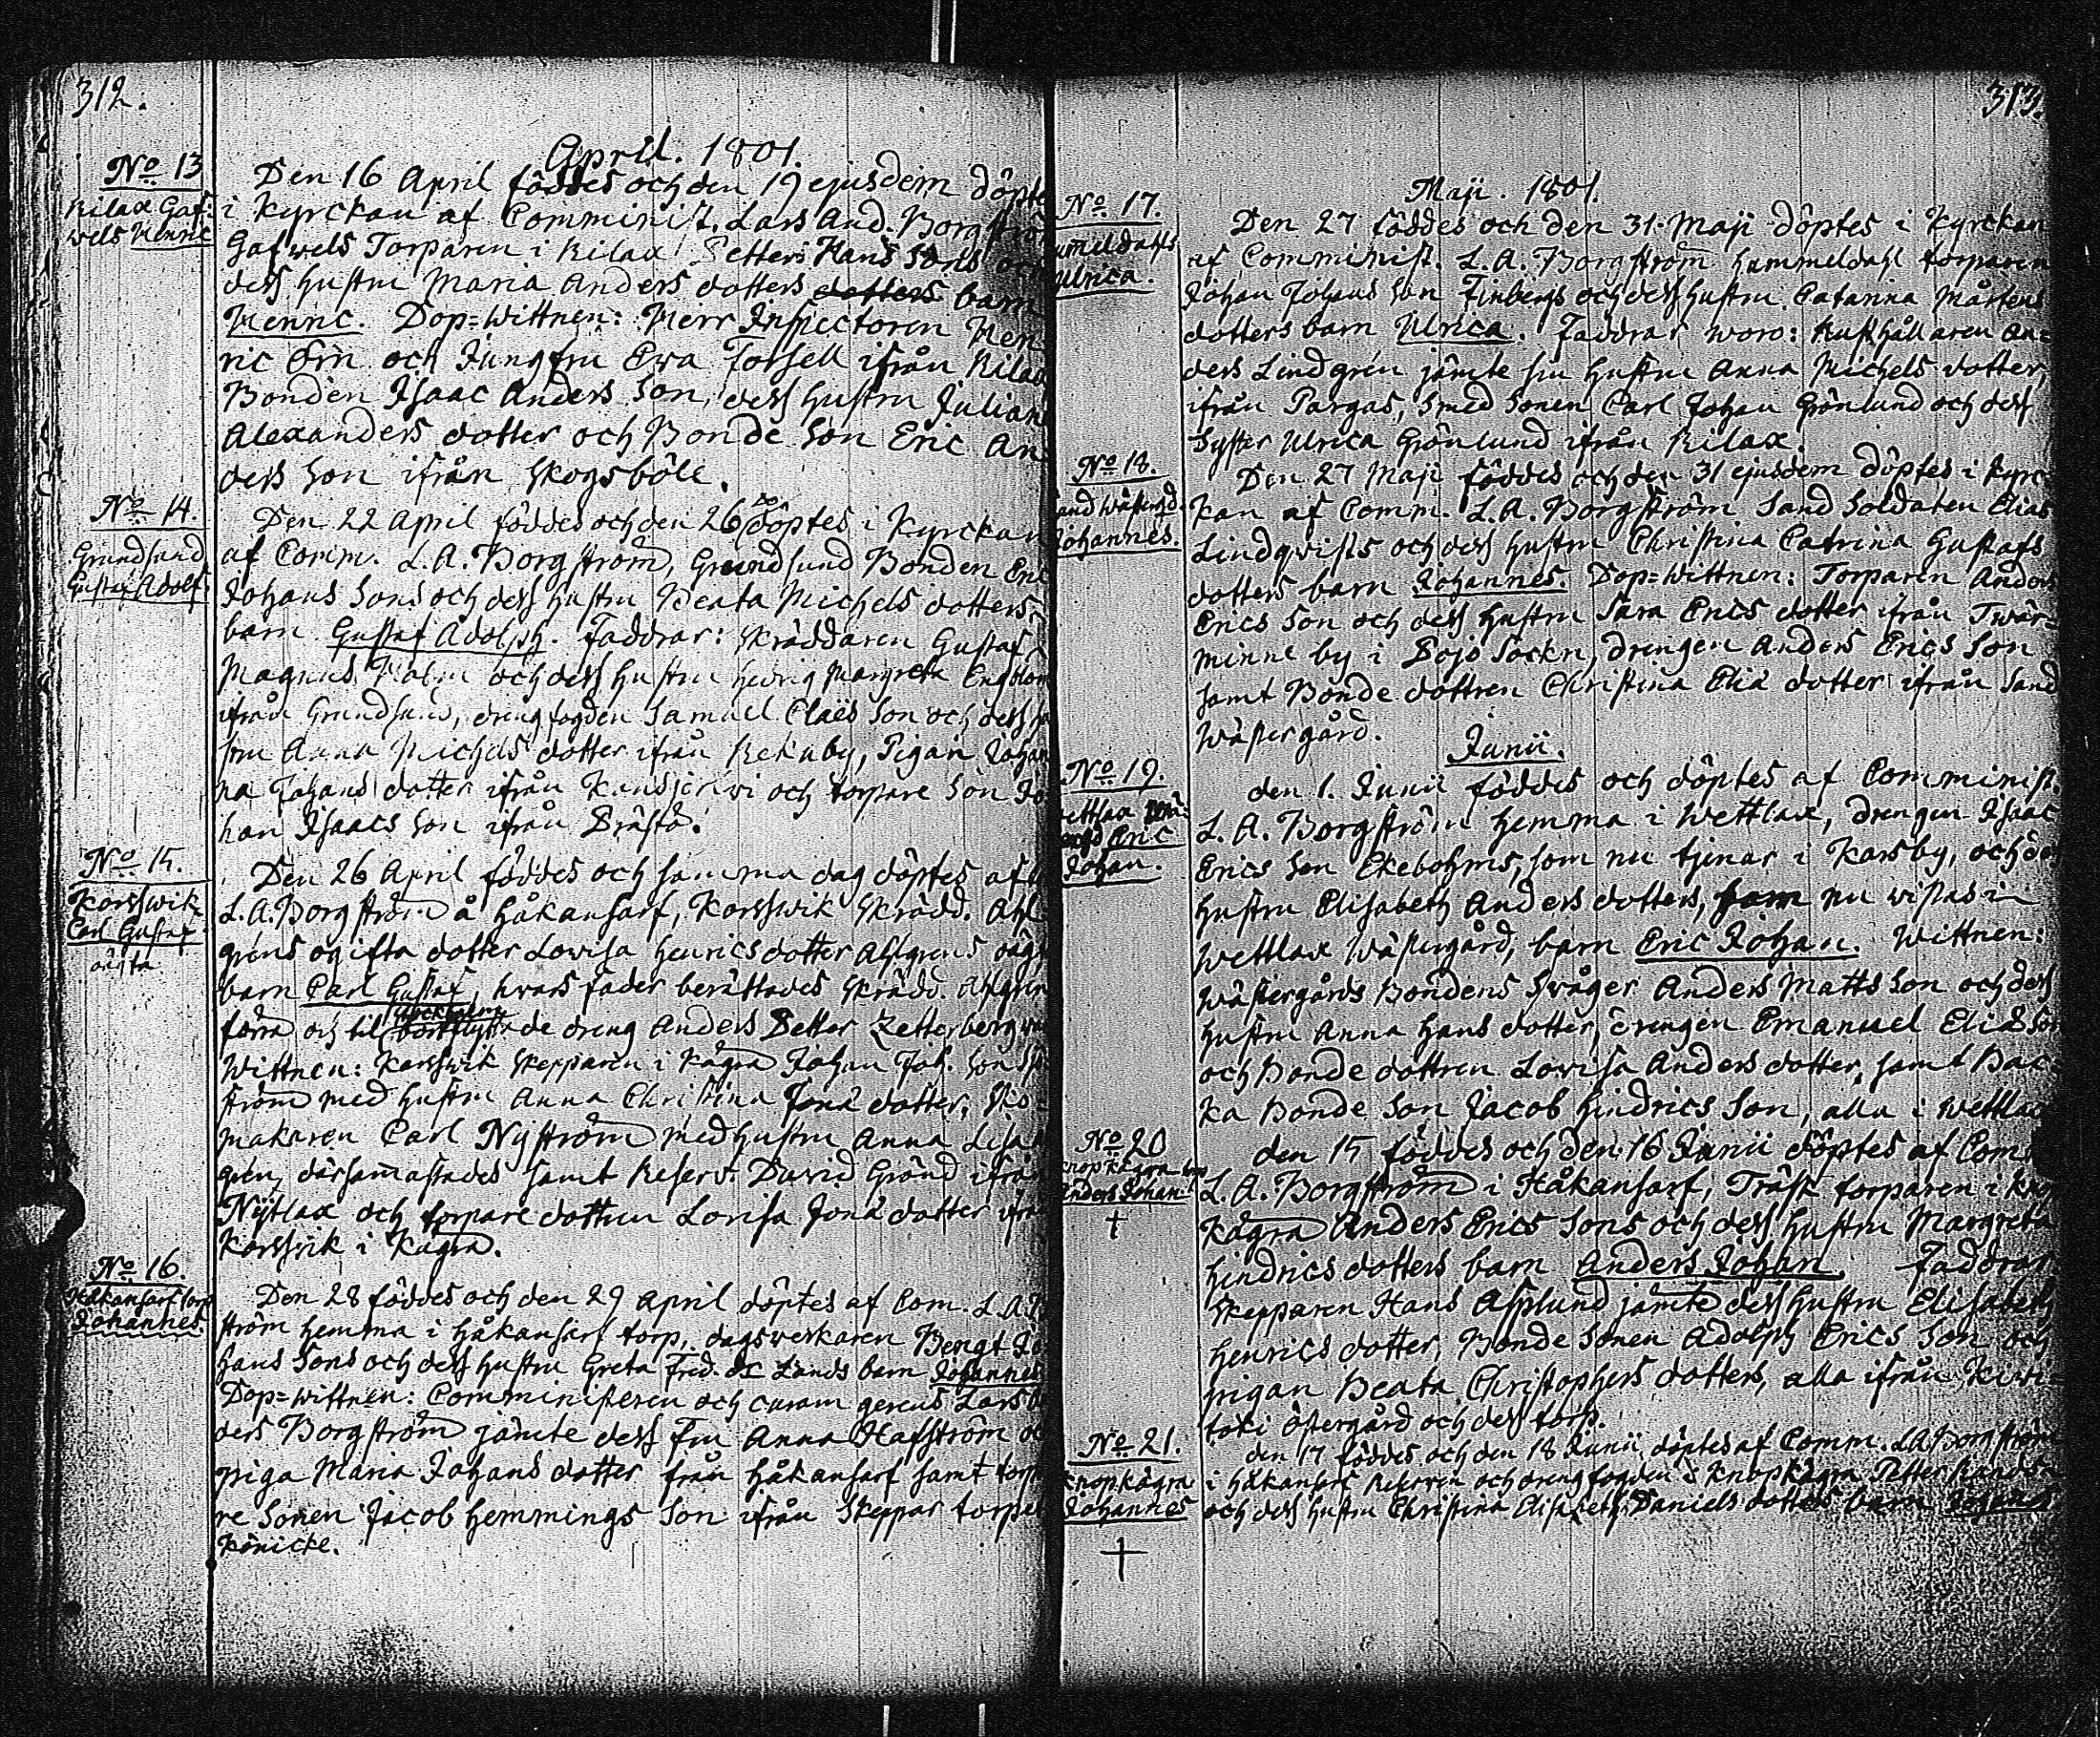 312.
April. 1801.
No 13
Rilax Gaf-
wels Henric
Den 16 April föddes och den 19 ejusdem döpte
i Kyrckan af Comminist. Lars And. Borgströ
Gafwels Torparen i Rilax Petter Hans Sons och
dess hustru Maria Anders dotters dotters barn
Henric. Dop=Wittnen: Herr Inspectoren Hen
ric Örn och Jungfru Ewa Forsell ifrån Rilax
Bonden Isaac Anders Son, dess hustru Julian
Alexanders dotter och Bonde Son Eric An
ders Son ifrån Skogsböle.
No 14.
Grundsund
Gustaf Adolf.
Den 22 April föddes och den 26 döptes i Kyrckan
af Comm. L. A. Borgström, Grundsund Bonden Eric
Johans Sons och dess hustru Beata Michels dotters
barn Gustaf Adolph. Faddrar: Skräddaren Gustaf
Magnus Malm och dess hustru Hedvig Margreta Engblom
ifrån Grundsund, drengfogden Samuel Claës Son och dess hu
stru Anna Michels dotter ifrån Rekuby, Pigan Johan
na Johans dotter ifrån Kansjerwi och torpare Son Jo
han Isaacs Son ifrån Bråstö.
No 15.
Korsswik
Carl Gustaf
oägta
Den 26 April föddes och samma dag döptes af
L. A. Borgström å Håkansarf, Korsswik Skrädd. Ahl
grens ogifta dotter Lovisa Henrics dotter Ahlgrens oäg
barn Carl Gustaf, hvars fader berättades Skrädd. Ahlgren
förra och til de dreng Anders Petter Zetterberg
Wittnen: Korsswik Skepparen i Kågra Johan Joh. Sons
ström med hustru Anna Christina Jonæ dotter, Sko
makaren Carl Nyström med hustru Anna Lisa
gren, därsammastades samt Reserv. David Grönd ifrån
Nytlax och torpare dottren Lovisa Jonæ dotter ifrå
Korsswik i Kågra.
No 16.
Håkansarf torp
Johannes
Den 28 föddes och den 29 April döptes af Com. L. A. B
ström hemma i Håkansarf torp, dagsverkaren Bengt Jo
hans Sons och dess hustru Greta Fred. Lunds barn Johannes
Dop=wittnen: Comministeren och curam gerens Lars
ders Borgström jämte dess Fru Anna Hafström
piga Maria Johans dotter från Håkansarf samt torpa
re Sonen Jacob Hemmings Son ifrån Skeppar torpet
Könicke.
313.
Maji. 1801.
No 17.
ummeldahls
Ulrica.
Den 27 föddes och den 31. Maji döptes i Kyrckan
af Comminist. L. A. Borgström Hummeldahl torparen
Johan Johans Son Finbergs och dess hustru Catarina Mårtens
dotters barn Ulrica. Faddrar woro: Rusthållaren An=
ders Lindgrén jämte sin hustru Anna Michels dotter,
ifrån Pargas, Smed Sonen Carl Johan Grönlund och dess
Syster Ulrica Grönlund ifrån Rilax.
No 18.
Sand Wästergd.
Johannes.
Den 27 Maji föddes och den 31 ejusdem döptes i Kyrc
kan af Comm. L. A. Borgström Sand Soldaten Elias
Lindqvists och dess hustru Christina Catrina Gustafs
dotters barn Johannes. Dop=Wittnen: Torparen Anders
Erics Son och dess hustru Sara Erics dotter ifrån Twär=
minne by i Pojo Sockn, drengen Anders Erics Son
samt Bonde dottren Christina Eliæ dotter ifrån Sand
Wästergård.
Junii.
No 19.
Wettlax
Eric
Johan.
den 1. Junii föddes och döptes af Comminist.
L. A. Borgström hemma i Wettlax, drengen Isaac
Erics Son Ekebohms, som nu tjenar i Karsby, och
hustru Elisabeth Anders dotters, som nu wistas i
Wettlax Wästergård, barn Eric Johan. Wittnen:
Wästergårds Bondens Svåger Anders Matts Son och dess
hustru Anna Hans dotter, drengen Emanuel Eliæ Son
och Bonde dottren Lovisa Anders dotter, samt Bac
ka Bonde Son Jacob Hindrics Son, alla i Wettlax
No 20
Knopkågra
Anders Johan
†
den 15 föddes och den 16 Junii döptes af Com.
L. A. Borgström i Håkansarf, Träsk torparen i
Kågra Anders Erics Sons och dess hustru Margreta
Hindrics dotters barn Anders Johan. Faddrar
Skepparen Hans Asplund jämte dess hustru Elisabeth
Henrics dotter, Bonde Sonen Adolph Erics Son och
pigan Beata Christophers dotters, alla ifrån Kiwi=
toki Östergård och dess torp.
No 21.
Knopkågra
Johannes
†
den 17 föddes och den 18 Junii döptes af Comm. L. A. Borgström
i Håkansarf Reserven och drengfogden i Knopkågra Petter
och dess hustru Christina Elisabeth Daniels dotters barn Johannes